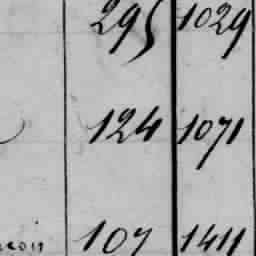 295 1029
124 1071
107 1411